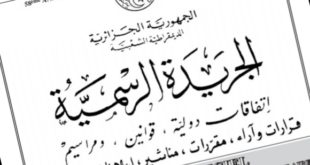 الجمهورية الجزائرية
الديمقراطية الشعبية
الجريدة الرسمية
إتفاقات دولية، قوانين، ومراسيم
قرارات وآراء، مقررات، مناشير،